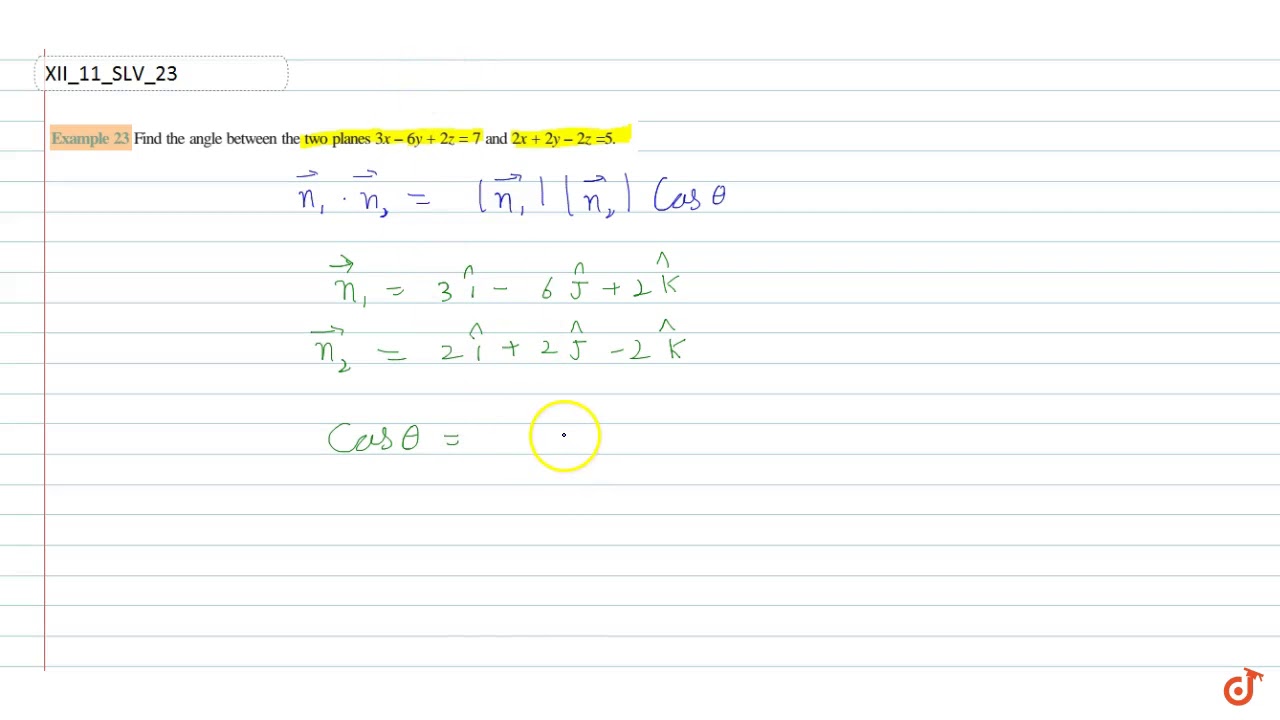 XII_11_SLV_23
Example 23 Find the angle between the two planes 3x – 6y + 2z = 7 and 2x + 2y – 2z =5.
n⃗₁ · n⃗₂ = |n⃗₁| |n⃗₂| Cos θ
n⃗₁ = 3î - 6Ĵ + 2K̂
n⃗₂ = 2î + 2Ĵ - 2K̂
Cos θ =